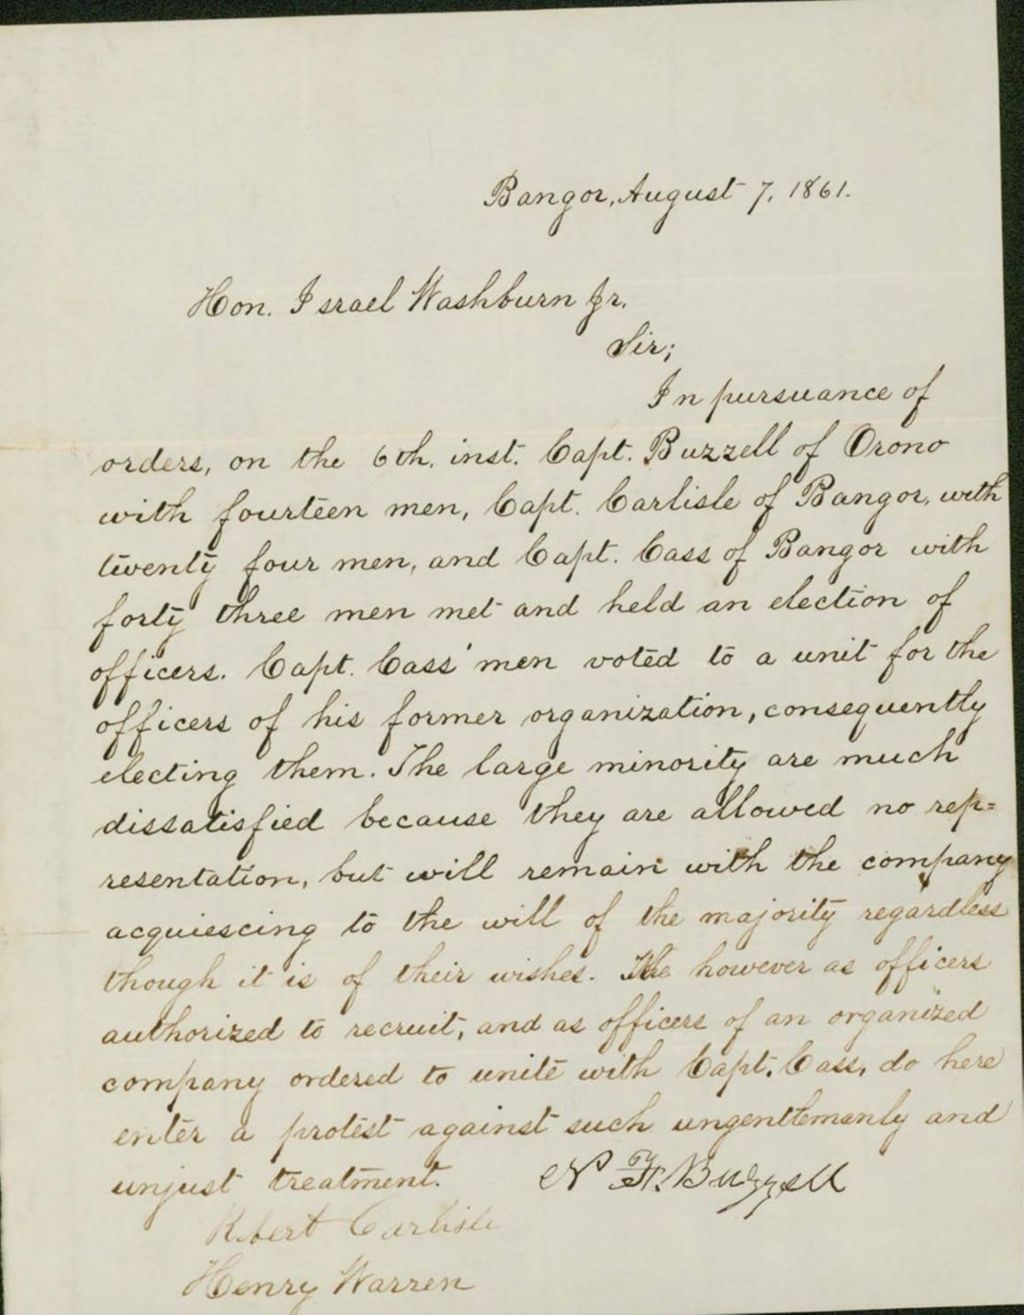 Bangor, August 7, 1861.
Hon. Israel Washburn Jr.
Sir;
In pursuance of
orders, on the 6th. inst. Capt. Buzzell of Orono
with fourteen men, Capt. Carlisle of Bangor, with
twenty four men, and Capt. Cass of Bangor with
forty three men met and held an election of
officers. Capt. Cass' men voted to a unit for the
officers of his former organization, consequently
electing them. The large minority are much
dissatisfied because they are allowed no rep=
resentation, but will remain with the company
acquiescing to the will of the majority regardless
though it is of their wishes. We however as officers
authorized to recruit, and as officers of an organized
company ordered to unite with Capt. Cass, do here
enter a protest against such ungentlemanly and
unjust treatment. N F. Buzzell
Robert Carlisle
Henry Warren